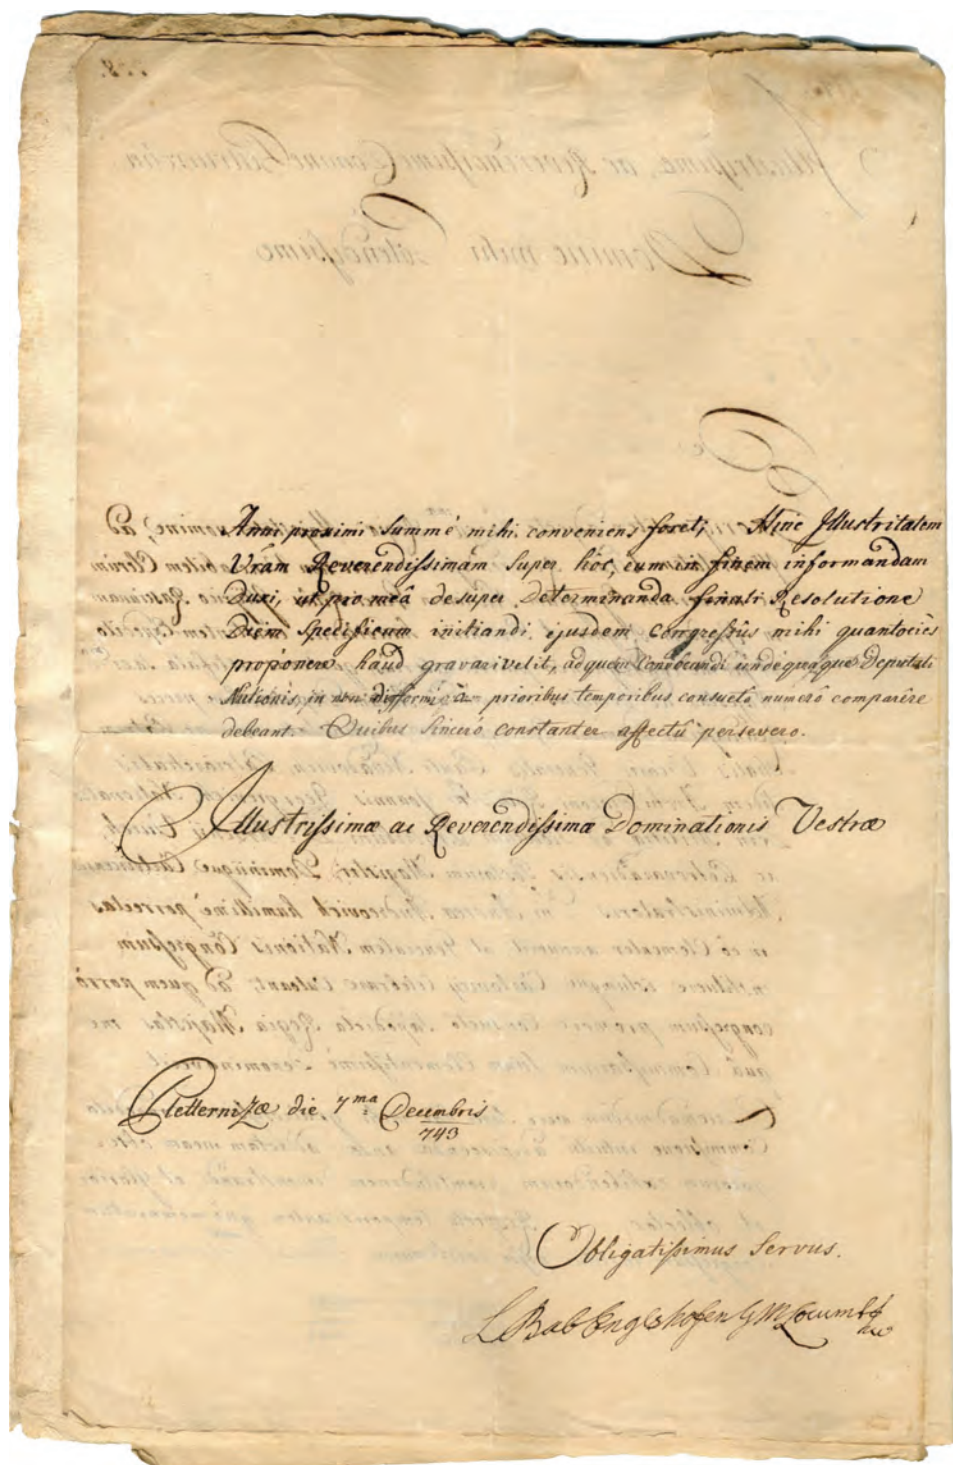 Anni proximi summè mihi conveniens foret; Hinc Illustritatem
Vrãm Reverendissimãm super hôc, eum in finem informandam
Duxi, ut pro meâ desuper determinanda finali Resolutione
Diem specificum initiandi ejusdem congressûs mihi quantociès
proponere haud gravari velit, ad quem Convocandi undequaque Deputati
Nationis, in non difformi à prioribus temporibus consueto numerô comparêre
debeant. Quibus sincerô constanter affectû persevero.
Illustrissimæ ac Reverendissimæ Dominationis Vestræ
Pletternizæ die 7ma Decembris
743
Obligatissimus Servus.
L Bab Engelshofen